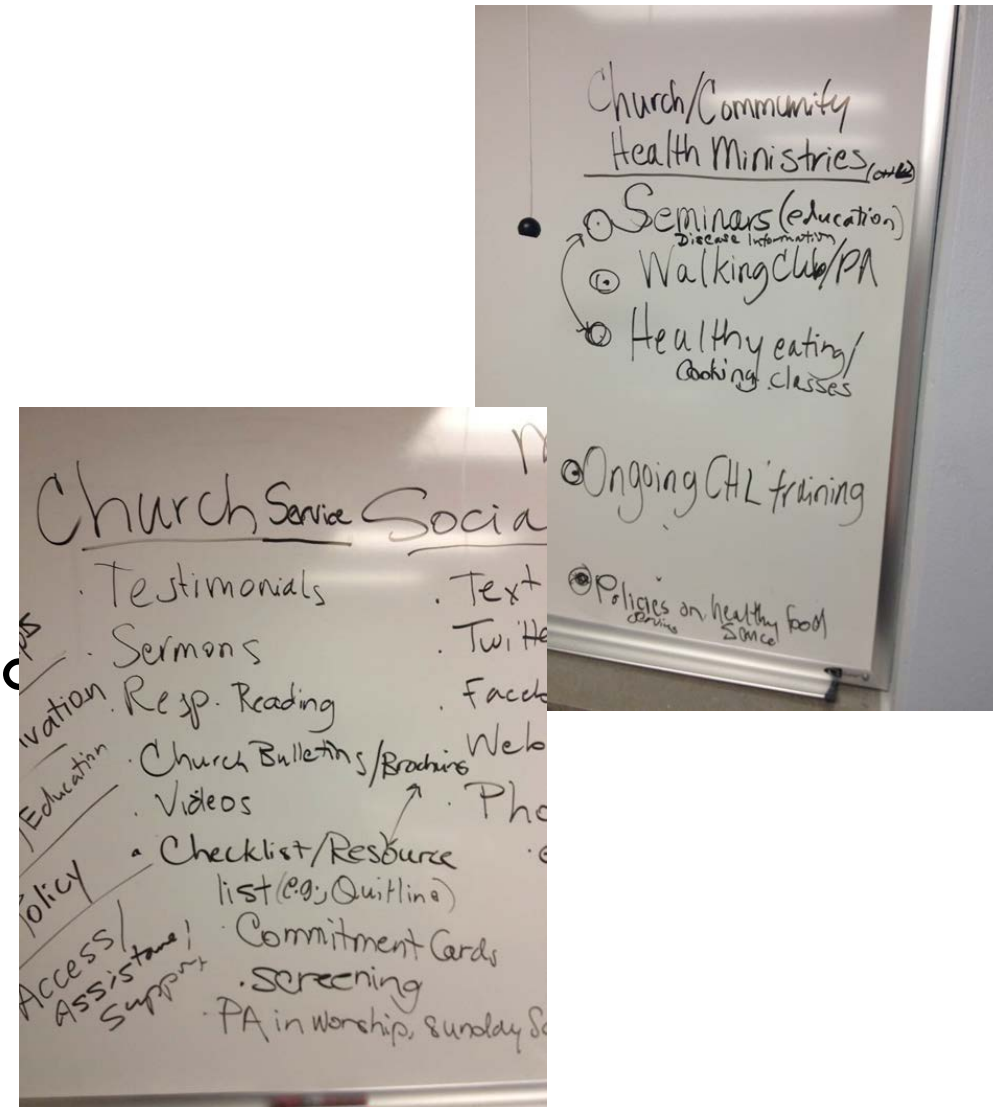 Church/Community
Health Ministries
Seminars (education)
Disease Information
Walking Club/PA
Healthy eating/
Cooking classes
Ongoing CHL training
Policies on healthy food
Church Service
Testimonials
Sermons
Resp. Reading
Church Bulletins/Brochures
Videos
Checklist/Resource
list (e.g., Quitline)
Commitment Cards
screening
PA in worship, Sunday
Socia
Text
Twitte
Faceb
Web
Pho
Education
Access/
Assistance/
Support